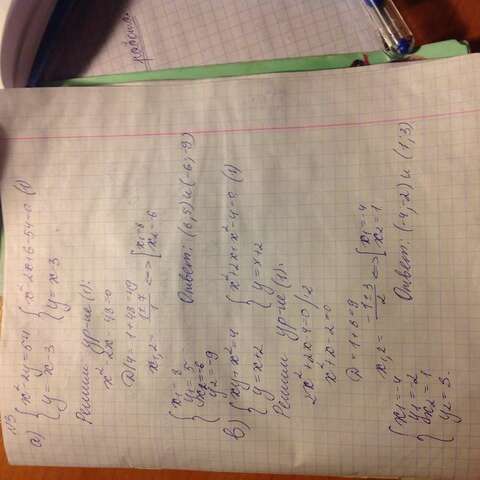 работа.
а) { x² - 2y = 54 { x² - 2x + 6 - 54 = 0 (1)
{ y = x - 3 { y = x - 3
Решим ур-ие (1):
x² - 2x - 48 = 0
D/4 = 1 + 48 = 49
x₁,₂ = (1 ± 7)/1 <=> [ x₁ = 8
x₂ = -6
{ x₁ = 8
y₁ = 5
{ x₂ = -6
y₂ = -9
Ответ: (8, 5) и (-6; -9)
в) { xy + x² = 4 { x² + 2x + x² - 4 = 0 (1)
{ y = x + 2 { y = x + 2
Решим ур-ие (1):
2x² + 2x - 4 = 0 / 2
x² + x - 2 = 0
D = 1 + 8 = 9
x₁,₂ = (-1 ± 3)/2 <=> [ x₁ = -4
x₂ = 1
{ x₁ = -4
y₁ = -2
{ x₂ = 1
y₂ = 3.
Ответ: (-4, -2) и (1; 3)